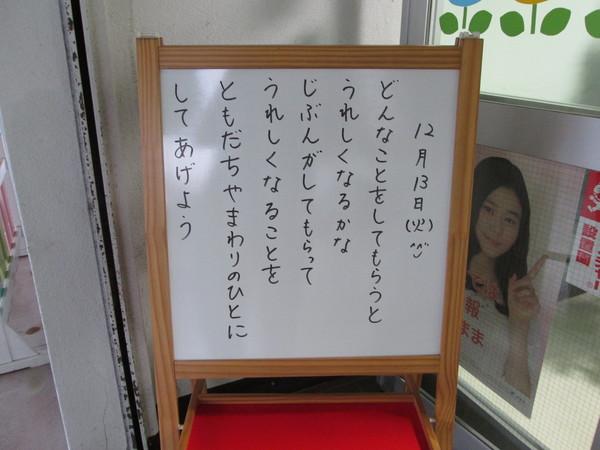 12月13日(火)^^
どんなことをしてもらうと
うれしくなるかな
じぶんがしてもらって
うれしくなることを
ともだちやまわりのひとに
してあげよう
設置園
報
まま